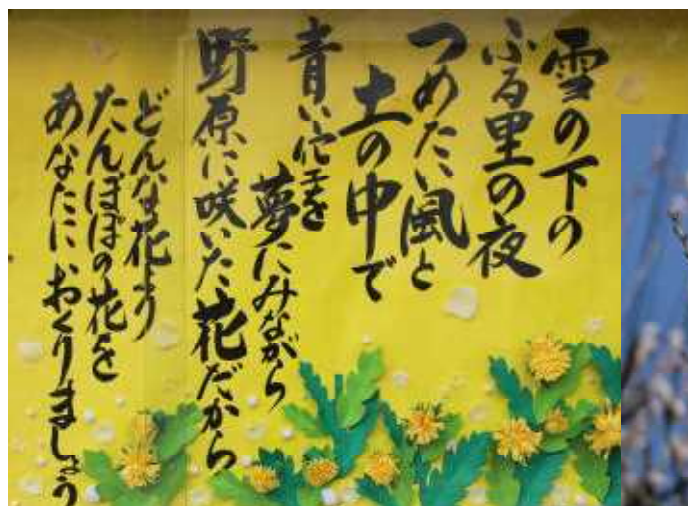 雪の下の
ふる里の夜
つめたい風と
土の中で
青い空を
夢にみながら
野原に咲いた花だから
どんな花より
たんぽぽの花を
あなたにおくりましょう